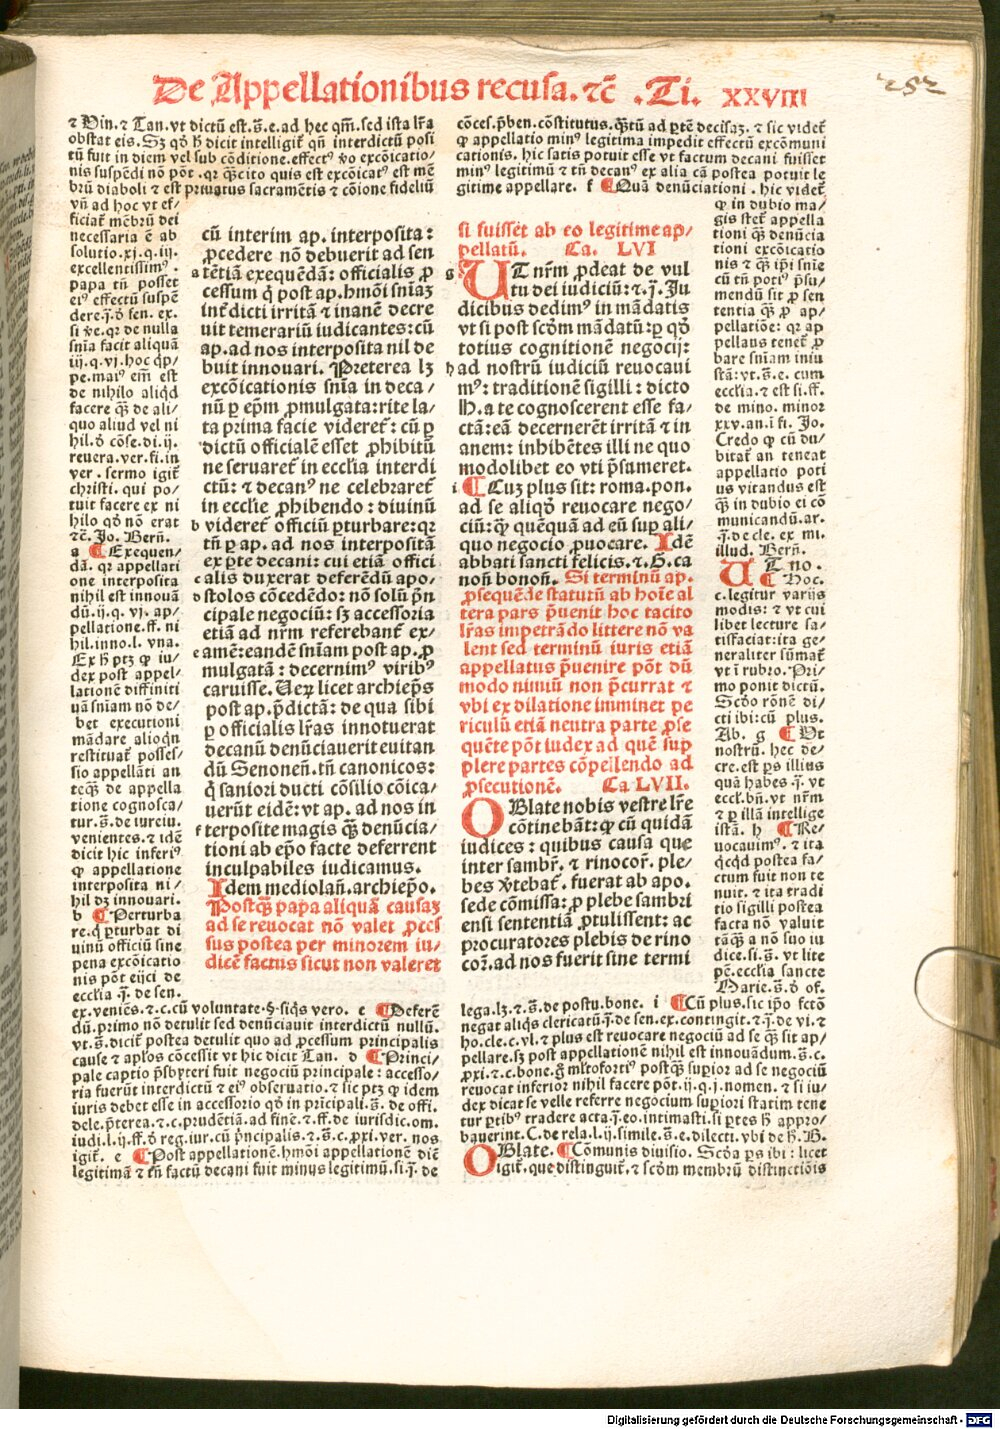 De Appellationibus recusa. ⁊c̄ .Ti. XXVIII
252
⁊ Vin. ⁊ Tan. vt dictū est. s̄. e. ad hec qm̄. sed ista lr̄a
obstat eis. Sꝫ qđ h̄ dicit intelligit̄ qn̄ interdictū posi
tū fuit in diem vel sub cōditione. effectꝰ v̓o excōicatio/
nis suspēdi nō pōt. qꝛ q̄cito quis est excōicatꝰ est mē
brū diaboli ⁊ est priuatus sacramētis ⁊ cōione fideliū
vn̄ ad hoc vt ef/
ficiat̄ mēbrū dei
necessaria ē ab
solutio. xj. q. iij.
excellentissimꝰ.
papa tn̄ posset
eiꝰ effectū suspē
dere. j̄. ō sen. ex.
si v̓e. qꝛ de nulla
sn̄ia facit aliquā
iij. q. vj. hoc qđp/
pe. maiꝰ em̄ est
de nihilo aliqđ
facere q̄ꝫ de ali/
quo aliud vel ni
hil. ō cōse. di. ij.
reuera. ver. fi. in
ver. sermo igit̄
christi. qui po/
tuit facere ex ni
hilo qđ nō erat
⁊c̄. Jo. Bern̄.
a ¶ Exequen/
dā. qꝛ appellati
one interposita
nihil est innouā
dū. ij. q. vj. ap/
pellatione. ff. ni
hil. inno. l. vna.
Ex h̄ ptꝫ ꝙ iu/
dex post appel/
lationē diffiniti
uā sn̄iam nō de/
bet executioni
mādare alioqn̄
restituat̄ posses/
sio appellāti an
teq̄ꝫ de appella
tione cognosca/
tur. s̄. de iureiu.
venientes. ⁊ idē
dicit hic inferiꝰ
ꝙ appellatione
interposita ni/
hil dꝫ innouari.
b ¶ Perturba
re. q̄ ꝑturbat di
uinū officiū sine
pena excōicatio
nis pōt eijci de
ecclīa j̄. de sen.
ex. veniēs. ⁊. c. cū voluntate. §. siq̄s vero. c ¶ Deferē
dū. primo nō detulit sed denūciauit interdictū nullū.
vt. s̄. dicit̄ postea detulit quo ad ꝓcessum principalis
cause ⁊ apl̄os cōcessit vt hic dicit Tan. d ¶ Princi/
pale captio p̄sbyteri fuit negociū principale: accesso/
ria fuerūt interdictū ⁊ eiꝰ obseruatio. ⁊ sic ptꝫ ꝙ idem
iuris debet esse in accessorio qđ in prīcipali. s̄. de offi.
dele. p̄terea. ⁊. c. prudētiā. ad finē. ⁊. ff. de iurisdic. om.
iudi. l. ij. ff. ō reg. iur. cū p̄ncipalis. ⁊. s̄. c. ꝓxi. ver. nos
igit̄. e ¶ Post appellationē. hmōi appellationē dicē
legitimā ⁊ tn̄ factū decani fuit minus legitimū. si. j̄. de
cū interim ap. interposita:
ꝓcedere nō debuerit ad sen
a tētiā exequēdā: officialis ꝓ
cessum q̄ post ap. hmōi sn̄iaꝫ
int̄dicti irritā ⁊ inanē decre
uit temerariū iudicantes: cū
ap. ad nos interposita nil de
buit innouari. Preterea lꝫ
excōicationis sn̄ia in deca/
nū ꝑ ep̄m ꝓmulgata: rite la/
ta prima facie videret̄: cū ꝑ
dictū officialē esset ꝓhibitū
ne seruaret̄ in ecclīa interdi
ctū: ⁊ decanꝰ ne celebraret̄
in ecclīe ꝓhibendo: diuinū
b videret̄ officiū ꝑturbare: qꝛ
tn̄ ꝑ ap. ad nos interpositā
ex ꝑte decani: cui etiā offici
c alis duxerat deferēdū apo/
d stolos cōcedēdo: nō solū p̄n
cipale negociū: sꝫ accessoria
etiā ad nr̄m referebant̄ ex/
e amē: eandē sn̄iam post ap. ꝓ
mulgatā: decernimꝰ viribꝰ
caruisse. Veꝝ licet archiep̄s
post ap. p̄dictā: de qua sibi
ꝑ officialis lr̄as innotuerat
decanū denūciauerit euitan
dū Senonen̄. tn̄ canonicos:
q̄ saniori ducti cōsilio cōica/
uerūt eidē: vt ap. ad nos in
f terposite magis q̄ꝫ denūcia/
tioni ab ep̄o facte deferrent
inculpabiles iudicamus.
Idem mediolan̄. archiep̄o.
Postq̄ꝫ papa aliquā causaꝫ
ad se reuocat nō valet ꝓces
sus postea per minorem iu/
dicē factus sicut non valeret
cōces. p̄ben. cōstitutus. q̄ꝫtū ad ꝑtē decisaꝫ. ⁊ sic videt̄
ꝙ appellatio minꝰ legitima impedit effectū excōmuni
cationis. hic satis potuit esse vt factum decani fuisset
minꝰ legitimū ⁊ tn̄ decanꝰ ex alia cā postea potuit le
gitime appellare. f ¶ Quā denūciationi. hic videt̄
ꝙ in dubio ma/
gis stet̄ appella
tioni q̄ꝫ denūcia
tioni excōicatio
nis ⁊ q̄ꝫ ip̄i sn̄ie
cū tn̄ potiꝰ p̄su/
mendū sit ꝓ sen
tentia q̄ꝫ ꝓ ap/
pellatiōe: qꝛ ap
pellans tenet̄ ꝓ
bare sn̄iam iniu
stā: vt. s̄. e. cum
ecclīa. ⁊ est si. ff.
de mino. minor
xxv. an. ī fi. Jo.
Credo ꝙ cū du/
bitat̄ an teneat
appellatio poti
us vitandus est
q̄ꝫ in dubio ei cō
municandū. ar.
j̄. de cle. ex. mi.
illud. Bern̄.
si fuisset ab eo legitime ap/
pellatū. Ca. LVI
g UT nr̄m ꝓdeat de vul
tu dei iudiciū: ⁊. j̄. Ju
dicibus dedimꝰ in mādatis
vt si post scōm mādatū: ꝑ qđ
totius cognitionē negocij:
h ad nostrū iudiciū reuocaui
mꝰ: traditionē sigilli: dicto
H. a te cognoscerent esse fa/
ctā: eā decernerēt irritā ⁊ in
anem: inhibētes illi ne quo
modolibet eo vti p̄sumeret.
i ¶ Cuꝫ plus sit: roma. pon.
ad se aliqđ reuocare nego/
ciū: q̄ꝫ quēquā ad eū suꝑ ali/
quo negocio ꝓuocare. Idē
abbati sancti felicis. ⁊. G. ca
non̄ bonon̄. Si terminū ap.
ꝓsequēde statutū ab hoīe al
tera pars p̄uenit hoc tacito
lr̄as impetrādo littere nō va
lent sed terminū iuris etiā
appellatus p̄uenire pōt dū
modo nimiū non p̄currat ⁊
vbi ex dilatione imminet pe
riculū etiā neutra parte ꝓse
quēte pōt iudex ad quē suꝑ
plere partes cōpellendo ad
ꝓsecutionē. Ca LVII.
OBlate nobis vestre lr̄e
cōtinebāt: ꝙ cū quidā
iudices: quibus causa que
inter sambr̄. ⁊ rinocor̄. ple/
bes v̓tebat̄. fuerat ab apo.
sede cōmissa: ꝓ plebe sambri
ensi sententiā ꝓtulissent: ac
procuratores plebis de rino
cor̄. ad nos fuerit sine termi
UT no.
¶ Hoc.
c. legitur varijs
modis: ⁊ vt cui
libet lecture sa/
tisfaciat: ita ge/
neraliter sūmat̄
vt ī rubro. Pri/
mo ponit dictū.
Scđo rōnē di/
cti ibi: cū plus.
Ab. g ¶ Vt
nostrū. hec de/
cre. est ꝑs illius
quā habes. j̄. vt
eccl̄. bn̄. vt nr̄m
⁊ ꝑ illā intellige
istā. h ¶ Re/
uocauimꝰ. ⁊ ita
q̄cqđ postea fa/
ctum fuit non te
nuit. ⁊ ita tradi
tio sigilli postea
facta nō valuit
tāq̄ꝫ a nō suo iu
dice. si. s̄. vt lite
pē. ecclīa sancte
Marie. s̄. ō of.
lega. lꝫ. ⁊. s̄. de postu. bone. i ¶ Cū plus. sic ip̄o fctō
negat aliq̄s clericatū. j̄. de sen. ex. contingit. ⁊. j̄. de vi. ⁊
ho. cle. c. vl. ⁊ plus est reuocare negociū ad se q̄ꝫ sit ap/
pellare. sꝫ post appellationē nihil est innouādum. s̄. c.
ꝓxi. ⁊. c. bone. ḡ ml̄tofortiꝰ postq̄ꝫ suꝑior ad se negociū
reuocat inferior nihil facere pōt. ij. q. j. nomen. ⁊ si iu/
dex dicat se velle referre negocium suꝑiori statim tene
tur ꝑtibꝰ tradere acta. j̄. eo. intimasti. si ꝑtes h̄ appro/
bauerint. C. de rela. l. ij. simile. s̄. e. dilecti. vbi de h̄. B.
OBlate. ¶ Cōmunis diuisio. Scđa ꝑs ibi: licet
igit̄. que distinguit̄. ⁊ scōm membrū distinctiōis
Digitalisierung gefördert durch die Deutsche Forschungsgemeinschaft - DFG